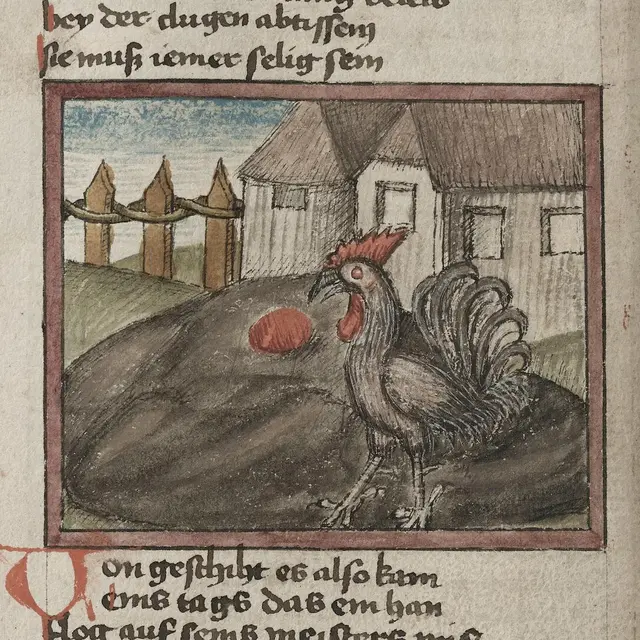 bey der clugen abtissem
sie muß iemer selig sein
Von geschiht es also kam
eins tags das ein han
flog auf seins meisters mis